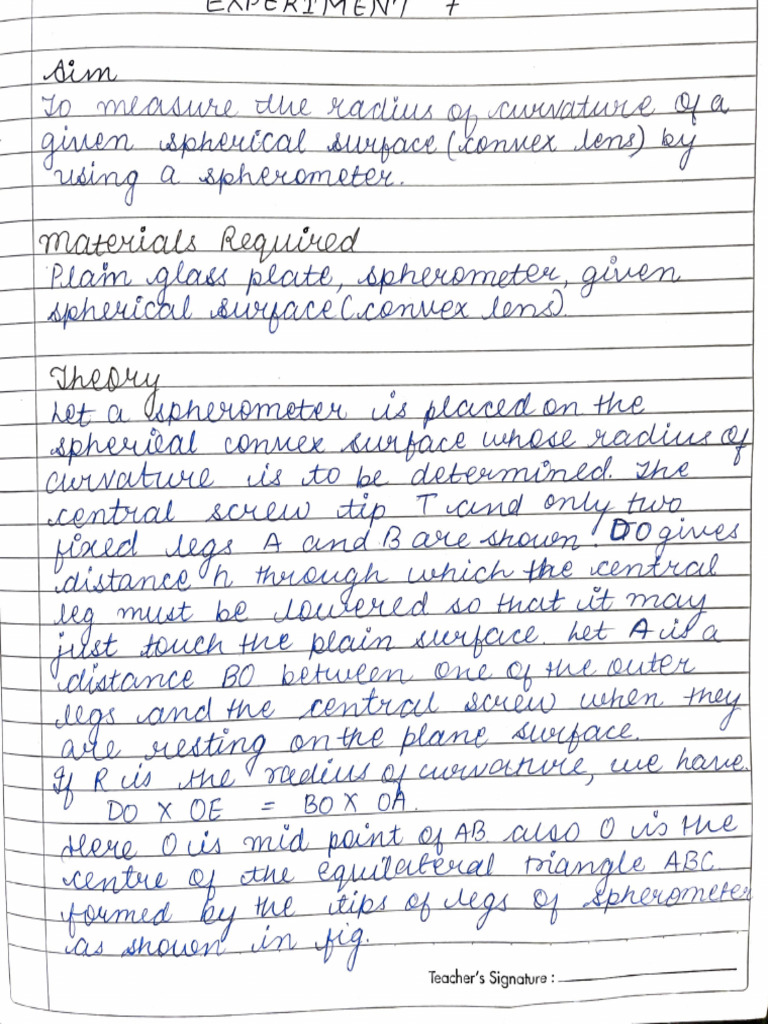 EXPERIMENT 7
Aim
To measure the radius of curvature of a
given spherical surface (convex lens) by
using a spherometer.
Materials Required
Plain glass plate, spherometer, given
spherical surface (convex lens).
Theory
Let a spherometer is placed on the
spherical convex surface whose radius of
curvature is to be determined. The
central screw tip T and only two
fixed legs A and B are shown. DO gives
distance h through which the central
leg must be lowered so that it may
just touch the plain surface. Let A is a
distance BO between one of the outer
legs and the central screw when they
are resting on the plane surface.
If R is the radius of curvature, we have.
DO X OE = BO X OA.
Here O is mid point of AB also O is the
centre of the equilateral triangle ABC
formed by the tips of legs of spherometer
as shown in fig.
Teacher's Signature :